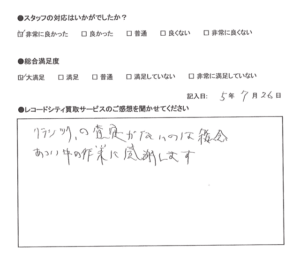 ●スタッフの対応はいかがでしたか?
☑非常に良かった □良かった □普通 □良くない □非常に良くない
●総合満足度
☑大満足 □満足 □普通 □満足していない □非常に満足していない
記入日: 5年 7月 26日
●レコードシティ買取サービスのご感想を聞かせてください
の査定がないのは残念
あつい中の作業に感謝します